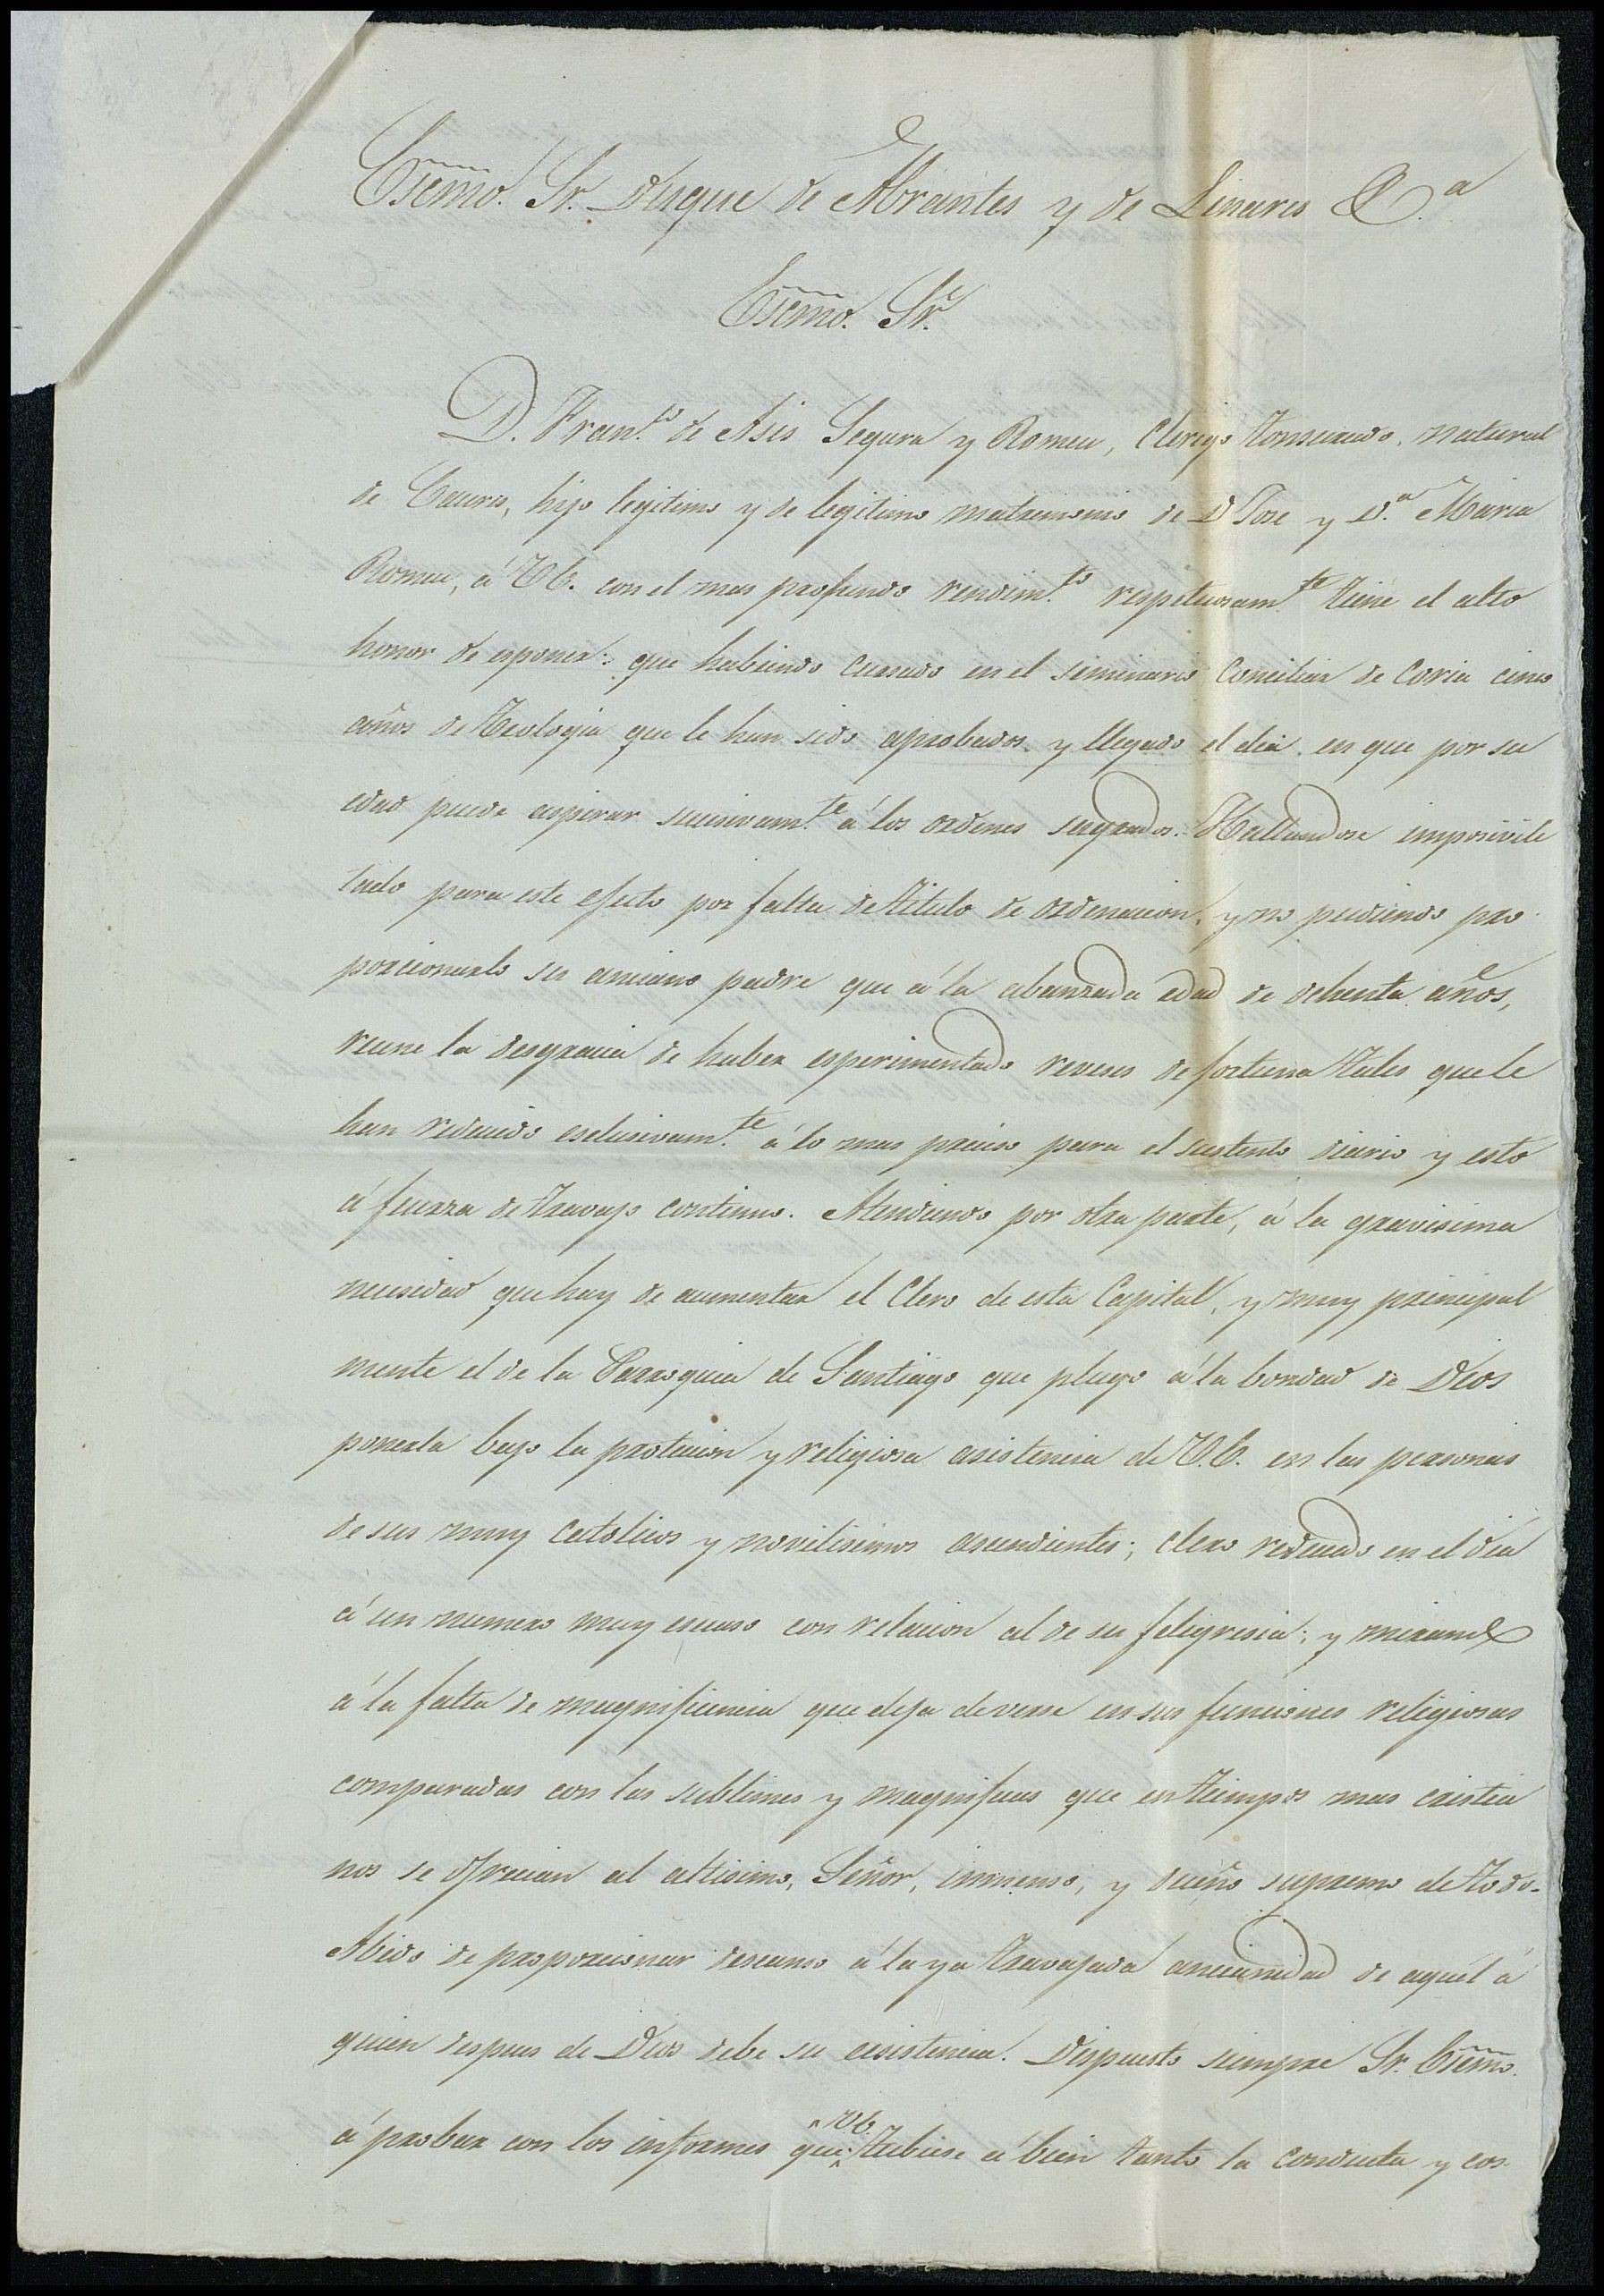 Escmo. Sr. Duque de Abrantes y de Linares &.a
Escmo. Sr.
D. Fran.co de Asis Segura y Romeu, Clerigo tonsurado, natural
de Caceres, hijo legitimo y de legitimo matrimonio de D Jose y D.a Maria
Romeu, á V.E. con el mas profundo rendim.to respetuosam.te tiene el alto
honor de esponer: que habiendo cursado en el seminario Conciliar de Coria cinco
años de Teologia que le han sido aprobados, y llegado el dia en que por su
edad puede aspirar sucesivam.te á los ordenes sagrados. Hallandose imposivili
tado para este efecto por falta de titulo de ordenacion, y no pudiendo pro
porcionarlo su anciano padre que á la abanzada edad de ochenta años,
reune la desgracia de haber esperimentado reveses de fortuna tales que le
han reducido esclusivam.te á lo mas preciso para el sustento diario y esto
á fuerza de travajo continuo. Atendiendo por otra parte, á la gravisima
necesidad que hay de aumentar el Clero de esta Capital, y muy principal
mente el de la Parroquia de Santiago que plugo á la bondad de Dios
ponerla bajo la protecion y religiosa asistencia de V.E. en las personas
de sus muy catolicos y novilisimos ascendientes; clero reducido en el dia
á un numero muy escaso con relacion al de su feligresia; y mirando
á la falta de magnificencia que deja de verse en sus funciones religiosas
comparadas con las sublimes y magnificas que en tiempos mas cristia
nos se ofrecian al altisimo, Señor, inmenso, y dueño supremo de todo.
Abido de proporcionar descanso á la ya travajada ancianidad de aquél á
quien despues de Dios debe su ecsistencia. Dispuesto siempre Sr. Escmo.
á probar con los informes que V.E. tubiese á bien tanto la conducta y cos